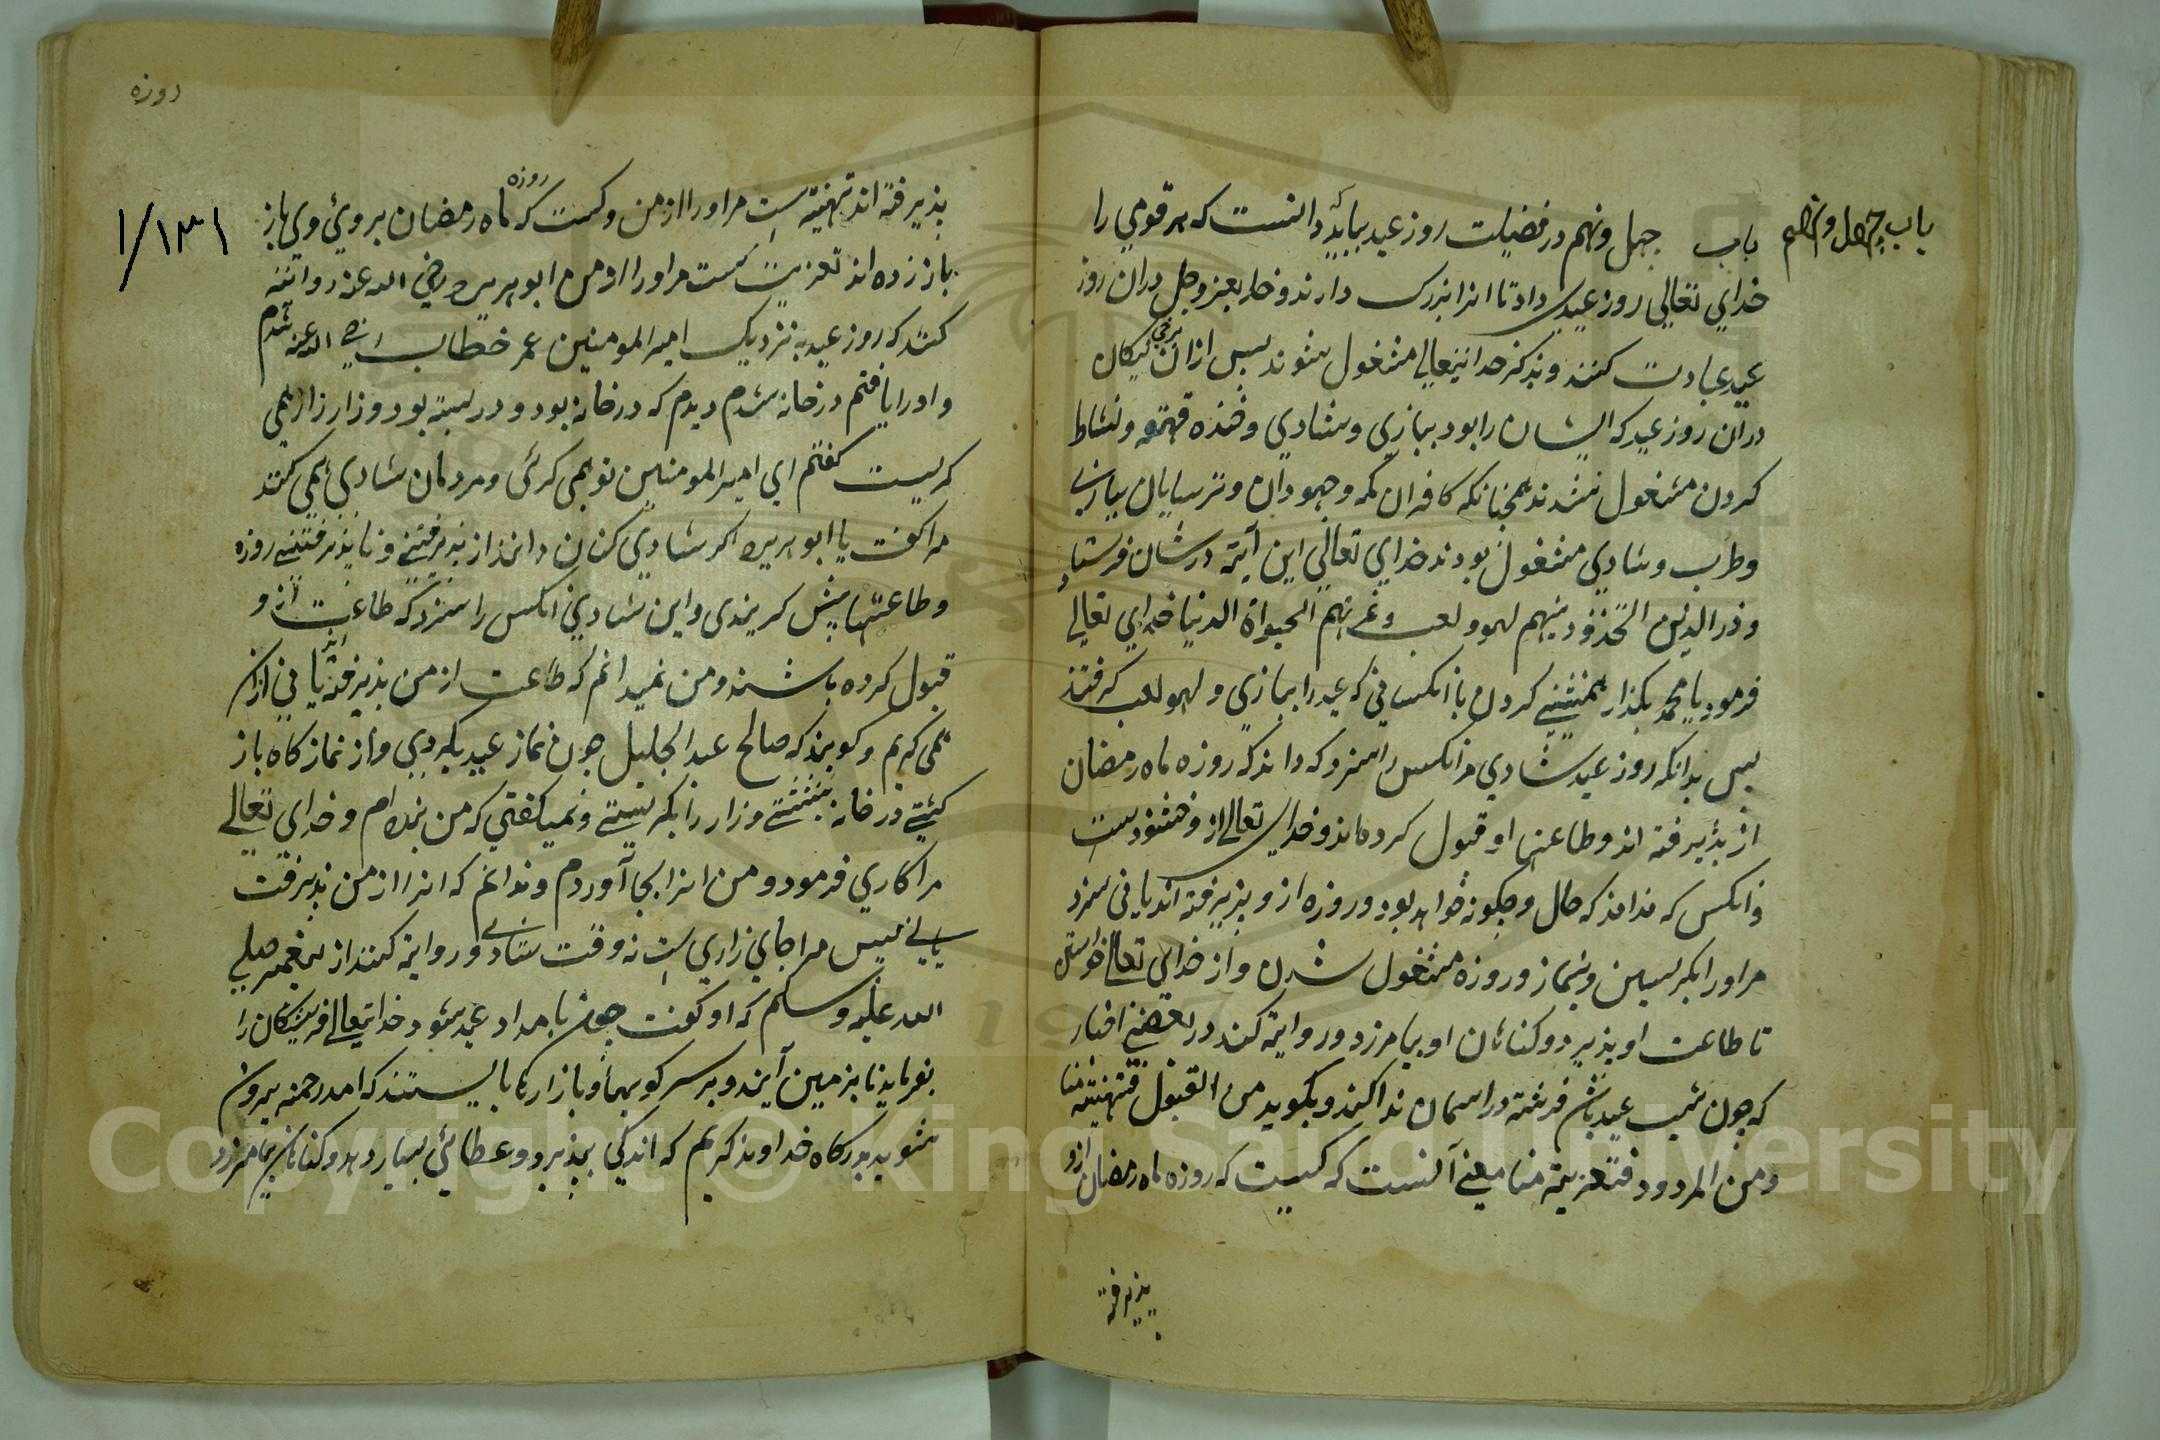 باب چهل و نهم
باب چهل و نهم در فضیلت روز عید بباید دانست که هر قومی را
خدای تعالی روز عیدی داد تا انرا بزرک دارند و خدایرا عز وجل دران روز
عید عبادت کنند و بذکر خدایتعالی مشغول شوند پس ازان
دران روز عید که ایشان را بود ببازی و شادی و خنده قهقهه و نشاط
کردن مشغول شدند همچنانکه کافران مکه و جهودان و ترسایان ببازی
و طرب و شادی مشغول بودند خدای تعالی این آیة در شان فرستاد
وذر الذین اتخذوا دینهم لهو ولعب وغرتهم الحیواة الدنیا خدای تعالی
فرمود یا محمد بکذار همنشینی کردن با آنکسانی که عید را ببازی و لهو لعب کرفتند
پس بدانکه روز عید شادی مر آنکس را سزد که داند که روزه ماه رمضان
از پذیرفته اند و طاعتها او قبول کرده اند و خدای تعالی از و خشنودست
و آنکس که نداند که حال و چکونه خواهد بود و روزه از و پذیرفته اند یا نی سزد
مر اورا بکریستن و بنماز و روزه مشغول شدن و از خدای تعالی خواستن
تا طاعت او پذیرد و کناهان او بیامرزد و روایة کنند در بعضی اخبار
که چون شب عید باشد فرشته در اسمان ندا کند و بکوید من القبول فتهنیته منا
و من المردود فتعزیته منا معنی آنست که کیست که روزه ماه رمضان ازو
پذیرفته
روزه
پذیرفته اند تهنیة است مر اورا از من و کیست که روزه ماه رمضان بروی وی باز
باز زده اند تعزیت است مر اورا از من ابو هریره رضی الله عنه روایة
کنند که روز عید به نزدیک امیر المومنین عمر خطاب رضی الله عنه شدم
و اورا یافتم در خانه شدم دیدم که در خانه بود و در بسته بود و زار زار همی
کریست کفتم ای امیر المومنین تو همی کرئی و مردمان شادی همی کنند
مرا کفت یا ابو هریره اکر شادی کنان دانند از پذیرفتنی و نا پذیرفتنی روزه
و طاعتها پیش کریندی و این شادی انکس را سزد که طاعت از و
قبول کرده باشند و من نمیدانم که طاعت از من پذیرفته اند یا نی ازان
همی کریم و کویند که صالح عبد الجلیل چون نماز عید بکردی و از نماز کاه باز
کشتی در خانه بنشستی و زار زار بکریستی و نمیکفتی که من بنده ام و خدای تعالی
مرا کاری فرمود و من انرا بجا آوردم و ندانم که انرا از من پذیرفت
یا نی پس مرا جای زاری است نه وقت شادی و روایة کنند از پیغمبر صلی
الله علیه وسلم که او کفت چون بامداد عید شود خدایتعالی فریشتکان را
بفرماید تا بزمین آیند و بر سر کویها و بازارها بایستند که امد رحمة بیرون
شوید بدرکاه خداوند کریم که اندکی بپذیرد و عطائی بسیار دهد و کناهان بیامرزد
۱/۱۳۱
Copyright © King Saud University
1957